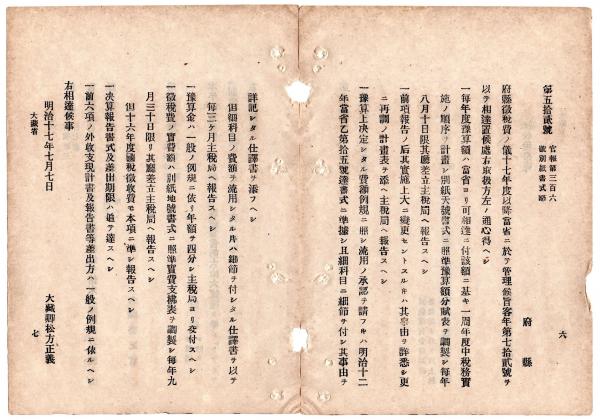 第五拾貳號
官報第三百六
號別紙書式略
府縣
府縣徵稅費ノ儀十七年度以降當省ニ於テ管理候旨客年第七拾貳號ヲ
以テ相達置候處右取扱方左ノ通心得ヘシ
一每年度豫算額ハ當省ヨリ可相達ニ付該額ニ基キ一周年度中稅務實
施ノ順序ヲ計畫シ別紙天號書式ニ照準豫算額分賦表ヲ調製シ每年
八月十日限其廳差立主稅局ヘ報告スヘシ
一前項報告ノ后其實施上大ニ變更セントスルキハ其事由ヲ詳悉シ更
ニ再調ノ計畫表ヲ添ヘ主稅局ヘ報告スヘシ
一豫算上決定シタル費額例規ニ照シ流用ノ承認ヲ請フキハ明治十二
年當省乙第拾五號達書式ニ準據シ且細科目ニ細節ヲ付シ其事由ヲ
六
詳記シタル仕譯書ヲ添フヘシ
但細科目ノ費額ヲ流用シタル片ハ細節ヲ付シタル仕譯書ヲ以テ
每三ケ月主稅局ヘ報告スヘシ
一豫算金ハ一般ノ例規ニ依リ年額ヲ四分シ主稅局ヨリ交付スヘシ
一徵稅費ノ實費額ハ別紙地號書式ニ照準實費支拂表ヲ調製シ每年九
月三十日限リ其廳差立主稅局ヘ報告スヘシ
但十六年度國稅徵收費モ本項ニ準シ報告スヘシ
一决算報告書式及差出期限ハ追テ達スヘシ
一前六項ノ外收支現計書及報告書等差出方ハ一般ノ例規ニ依ルヘシ
右相達候事
明治十七年七月七日
大藏省
大藏卿松方正義
七